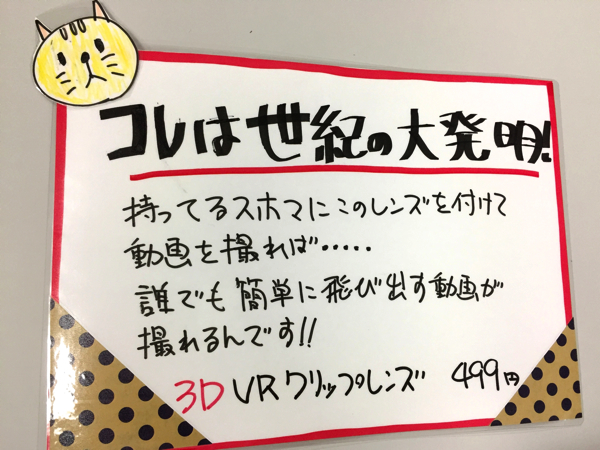 コレは世紀の大発明!
持ってるスホマにこのレンズを付けて
動画を撮れば・・・・・
誰でも簡単に飛び出す動画が
撮れるんです!!
3D VRクリップレンズ 499円